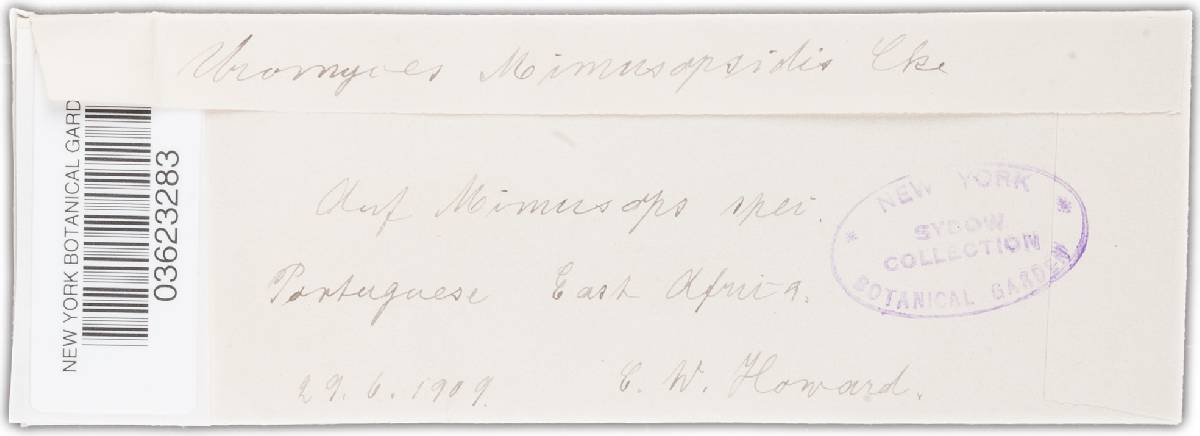 Uromyces Mimusopsidis Cke
Auf Mimusops spec.
Portuguese East Africa.
29.6.1909.
C. W. Howard.
NEW YORK
SYDOW
COLLECTION
BOTANICAL GARDEN
NEW YORK BOTANICAL GARD
03623283